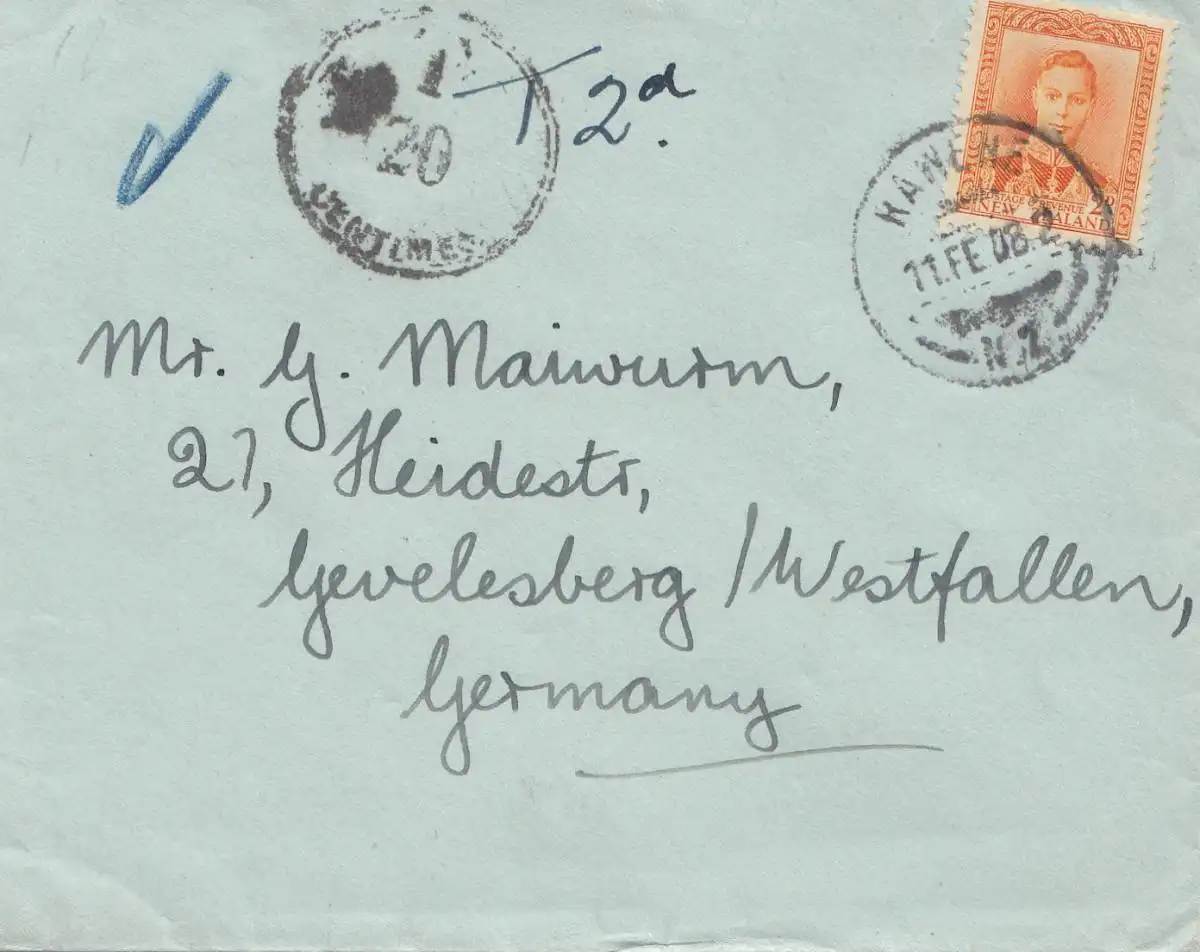 T
20
CENTIMES
T 2d.
POSTAGE & REVENUE
2D
NEW ZEALAND
RAWENE
11.FE 08-2
N.Z
Mr. G. Maiwurm,
27, Heidestr,
Gevelesberg / Westfallen,
Germany